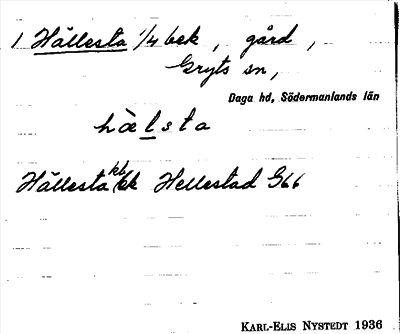 1 Hållesta 1/4 bek, gård,
Gryts sn,
Daga hd, Södermanlands län
hælsta
Hållesta kb bk Hellestad G66
KARL-ELIS NYSTEDT 1936